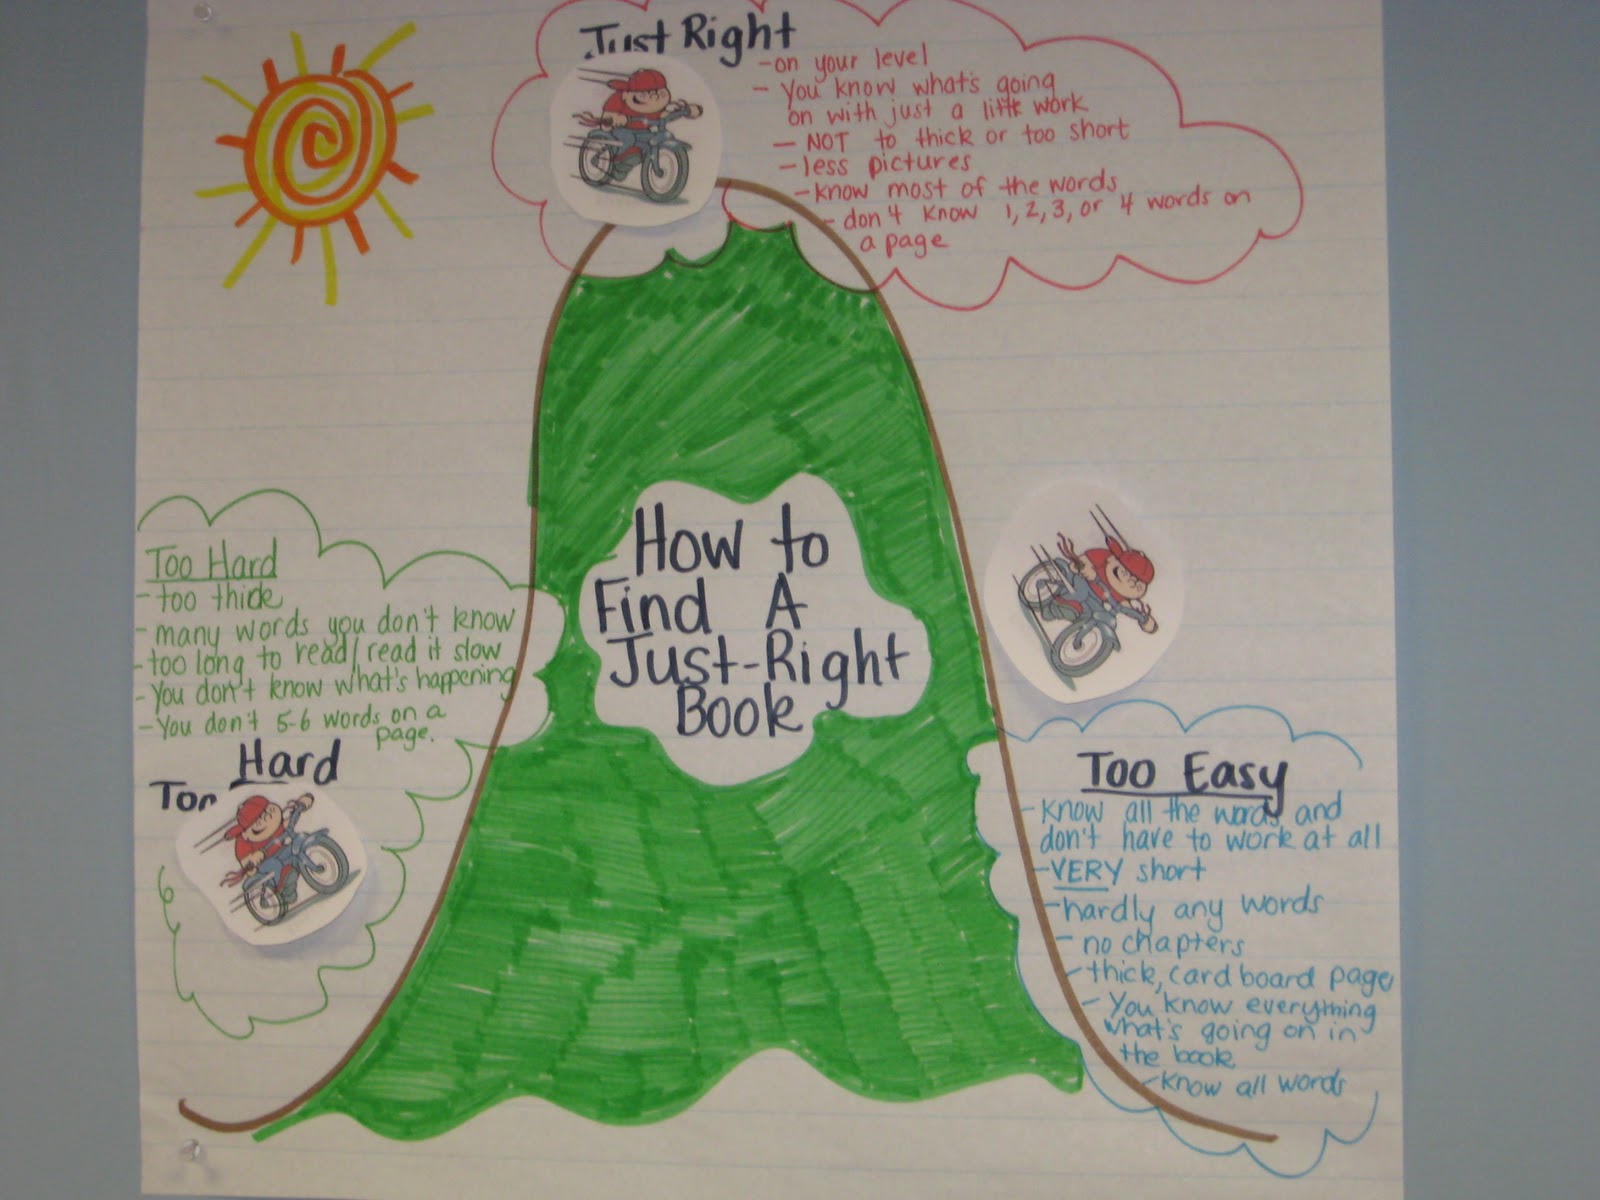 Just Right
-on your level
- You know what's going
on with just a little work
- NOT to thick or too short
-less pictures
-know most of the words
- don't know 1, 2, 3, or 4 words on
a page
How to
Find A
Just-Right
Book
Too Hard
- too thick
- many words you don't know
- too long to read/read it slow
- You don't know what's happening
- You don't 5-6 words on a
page.
Hard
Too
Too Easy
- know all the words and
don't have to work at all
- VERY short
- hardly any words
- no chapters
- thick, card board page
- You know everything
what's going on in
the book
- know all words